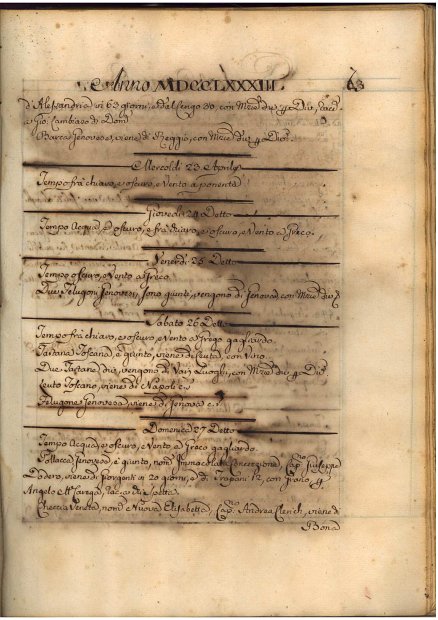 Anno MDCCLXXXIII 63
d'Alessandria in 63 giorni, e dal Cengo 30, con Mrcie div. p. Div.
e Gio: Cambiaso di Dom.
Barca Genovese, viene di Reggio, con Mrcie div. p. Div.
Mercoldi 23 Aprile
Tempo frà chiaro, e oscuro, e Vento a ponente
Giovedi 24 Detto
Tempo Acqua, e oscuro, e frà chiaro, e oscuro, e Vento a Greco
Venerdi 25 Detto
Tempo oscuro, e Vento a Greco
Due Felugoni Genovesi, sono giunti, vengono di Genova, con Mrcie div.
Sabato 26 Detto
Tempo frà chiaro, e oscuro, e Vento a Grego gagliardo
Tartana Toscana, è giunta, viene di con Vino
Due Tartane div. vengono da Varj Luoghi, con Mrcie div. p. Div.
Leuto Toscano, viene di Napoli c. s.
Felugone Genovese, viene di Genova c. s.
Domenica 27 Detto
Tempo Acqua, e oscuro, e Vento a Greco gagliardo
Pollacca Genovese, è giunta, nom. Immacolata Concezione, Cap. Giuseppe
Dodero, viene di Girgenti in 20 giorni, e di Trapani 12, con grano p.
Angelo M. la
Checcia Veneta, nom. Nuova Elisabetta, Cap. Andrea viene di
Bona